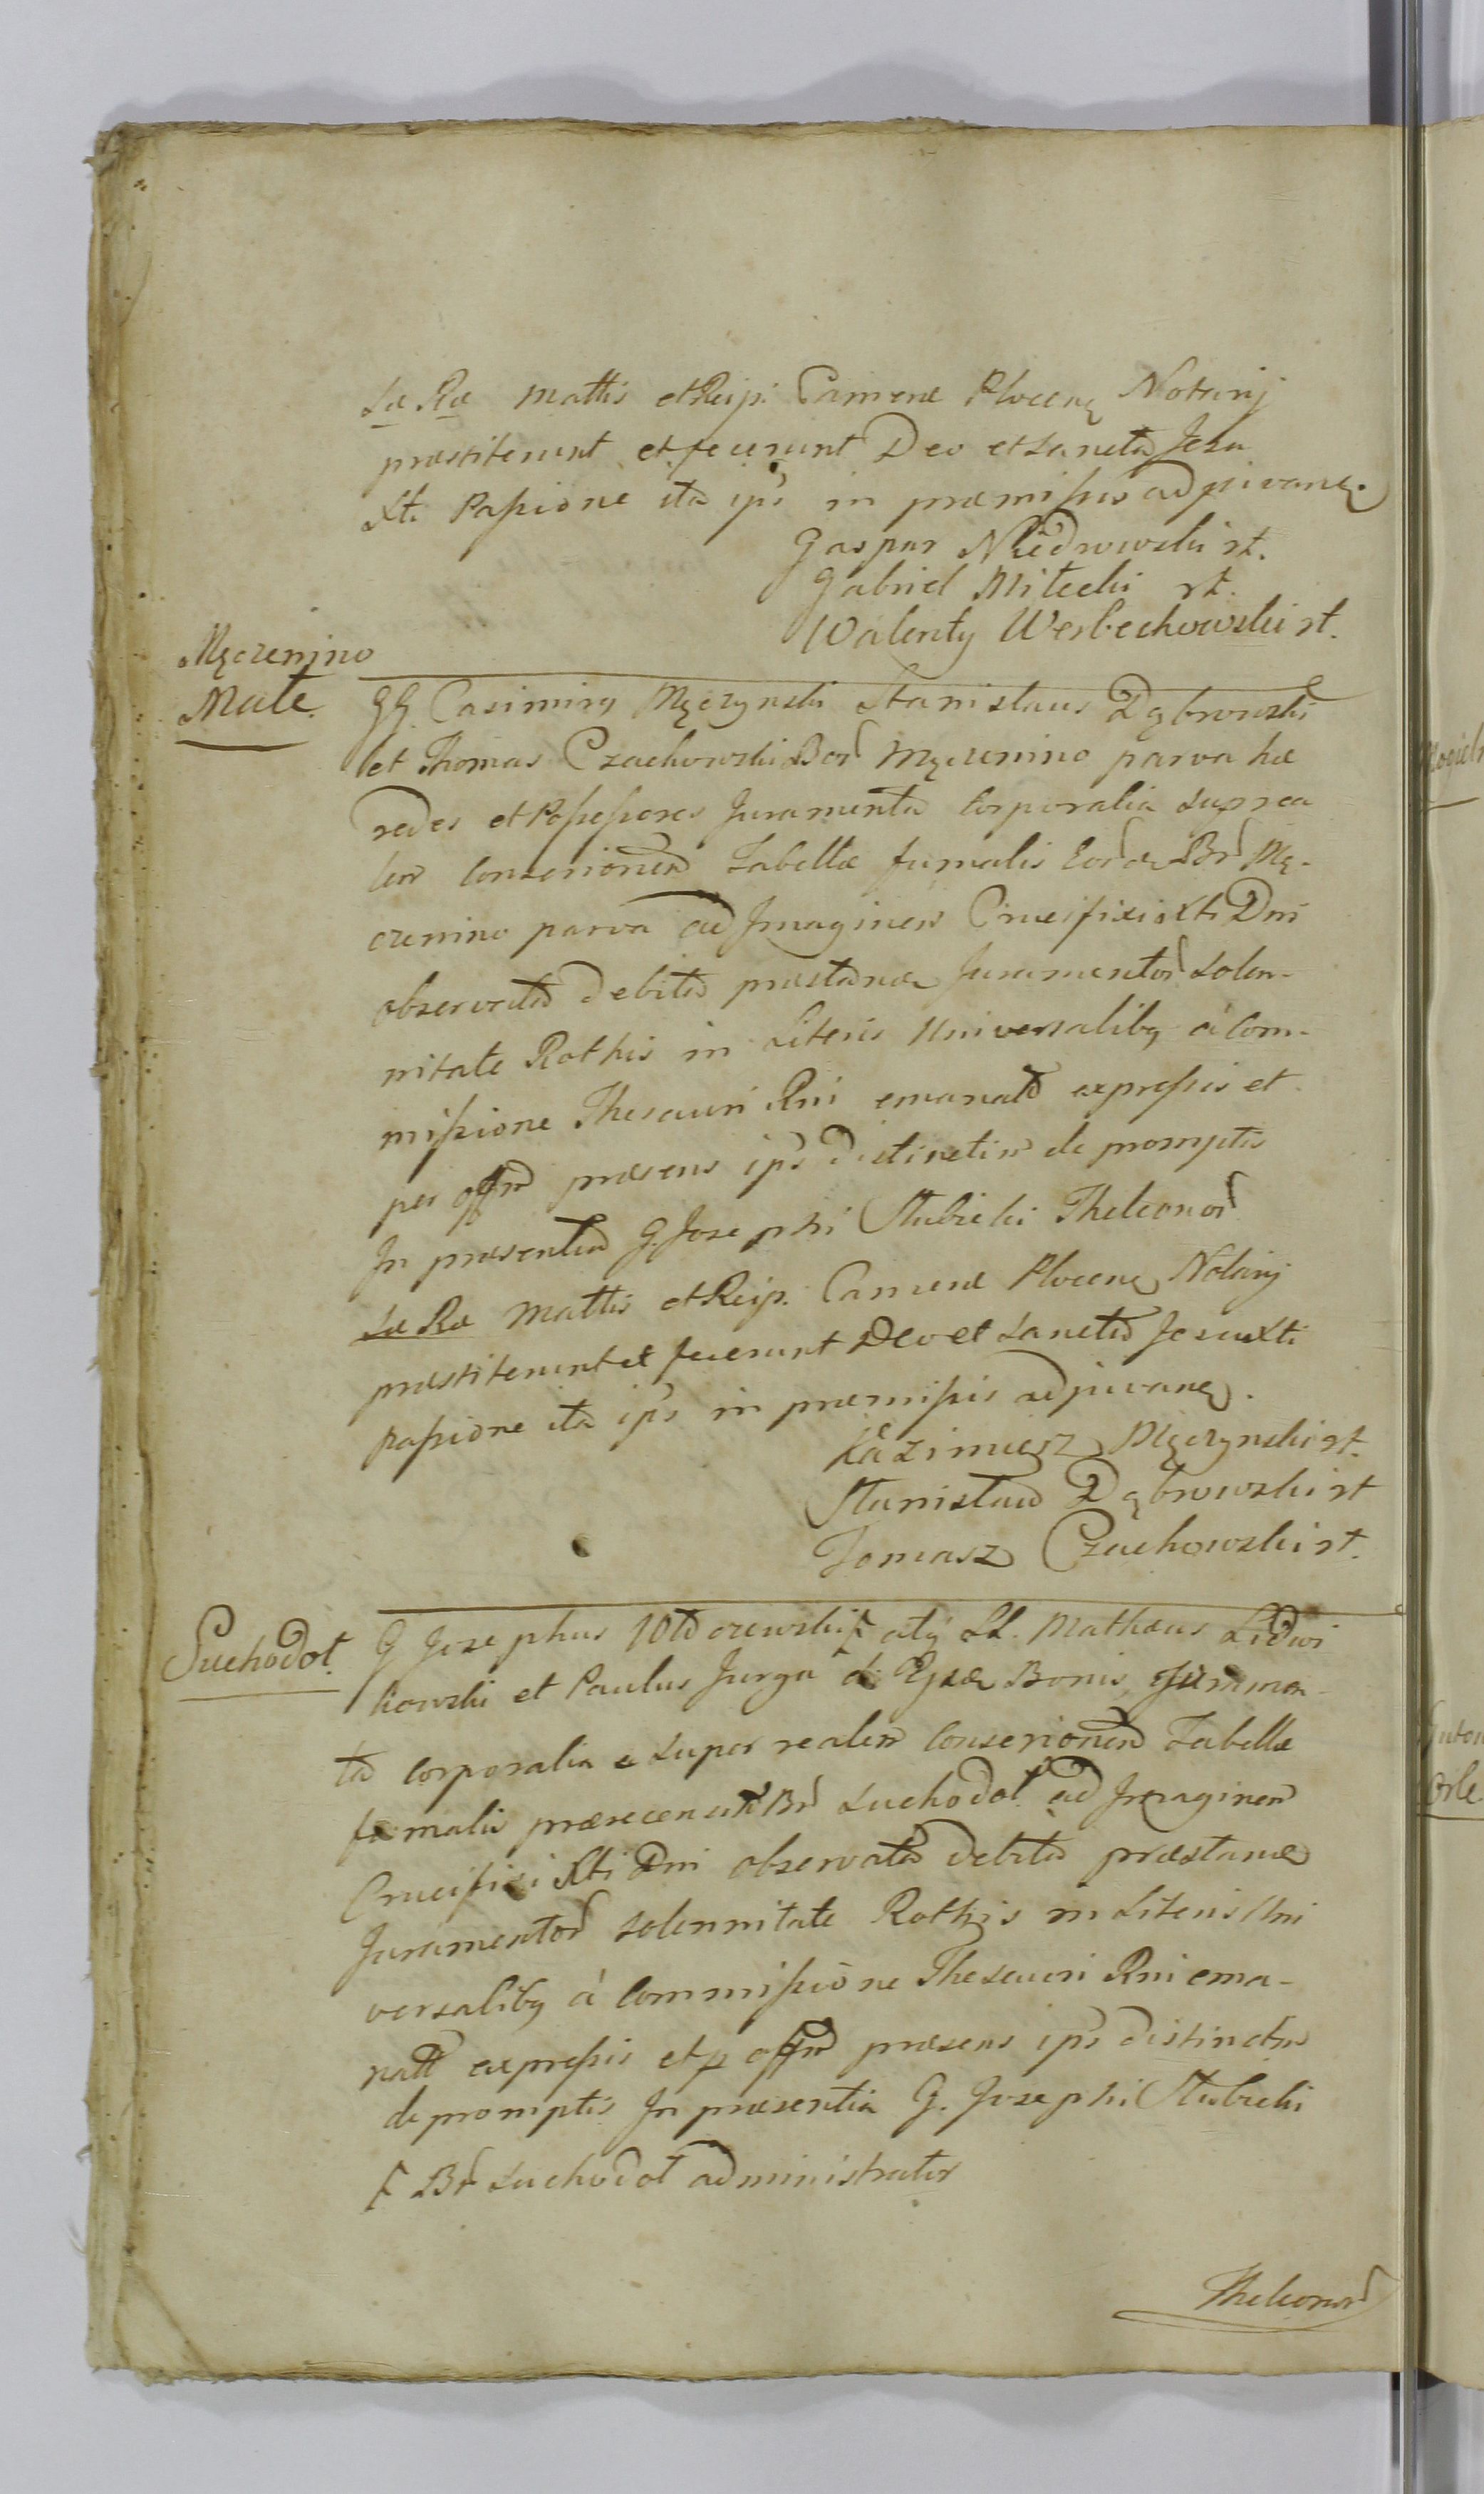 Sæ Ræ Mattis et Reip: Camere Plocenɇ Notarij
præstiterunt et fecerunt Deo et Sancta Jesu
Xti Passione ita ips in præmissis adjuvanɇ.
Gaspar Niedrowski rt.
Gabriel Miłecki rt.
Walenty Werbechowski rt.
Męczenino
Małe.
GG. Casimirg Męczynski Stanislaus Dąbrowski
et Thomas Czachowski Bor Męczenino parva hæ
redes et Possessores Juramenta Corporalia Supr rea
lem Conserionem Tabellæ fumalis Eorde Br Mę-
czenino parva ad Imaginem Crucifixi Xti Dni
observata debita præstandr Juramentor Solen-
nitate Rothis in Literis Universalibg à Com-
missione Thesauri Rni emanatt expressis et
per offm præsens ips distinctim depromptis
In præsentia G. Josephi Słubicki Theleonor
Sæ Ræ Mattis et Reip. Camere Plocenɇ Notarij
præstiterunt et fecerunt Deo et Sancta Jesu Xti
passione ita ips in præmissis adjuvanɇ.
Kazimierz Męczynski rt.
Stanisław Dąbrowski rt
Tomasz Czachowski rt.
Suchodoł.
G Josephus Wtd czewski ꝉ atg LL. Mathæus Lidwi
kowski et Paulus Jurga de Ejsde Bonis, Juramen-
ta corporalia super realem Conserionem Tabellæ
fumalis præreccensit Br Suchodoł ad Imaginem
Crucifixi Xti Dni observata debita præstand
Juramentor solennitate Rothis in Literis Uni
versalibg à Commissione Thesauri Rni ema-
natt expressis et p offm præsens ips distinctim
depromptis In præsentia G. Josephi Słubicki
ꝉ Br Suchodoł administrator
Theleonor